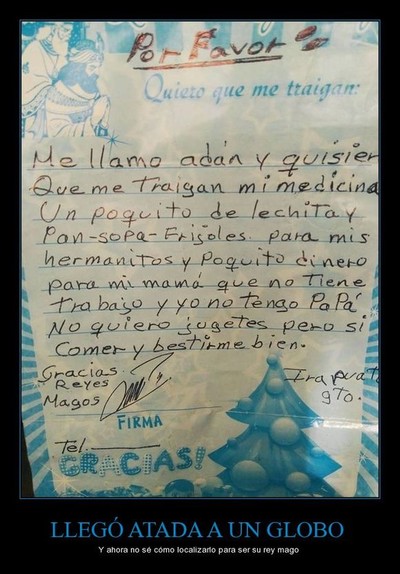 Por Favor
Quiero que me traigan:
Me llamo adán y quisier
Que me Traigan mi medicina
Un poquito de lechita y
Pan-sopa-Frijoles. para mis
hermanitos y Poquito dinero
para mi mamá que no Tiene
Trabajo y yo no tengo PaPá
No quiero jugetes pero si
Comer y bestirme bien.
Gracias.
Reyes
Magos
Irapuato
gto.
FIRMA
Tel.
GRACIAS!
LLEGÓ ATADA A UN GLOBO
Y ahora no sé cómo localizarlo para ser su rey mago